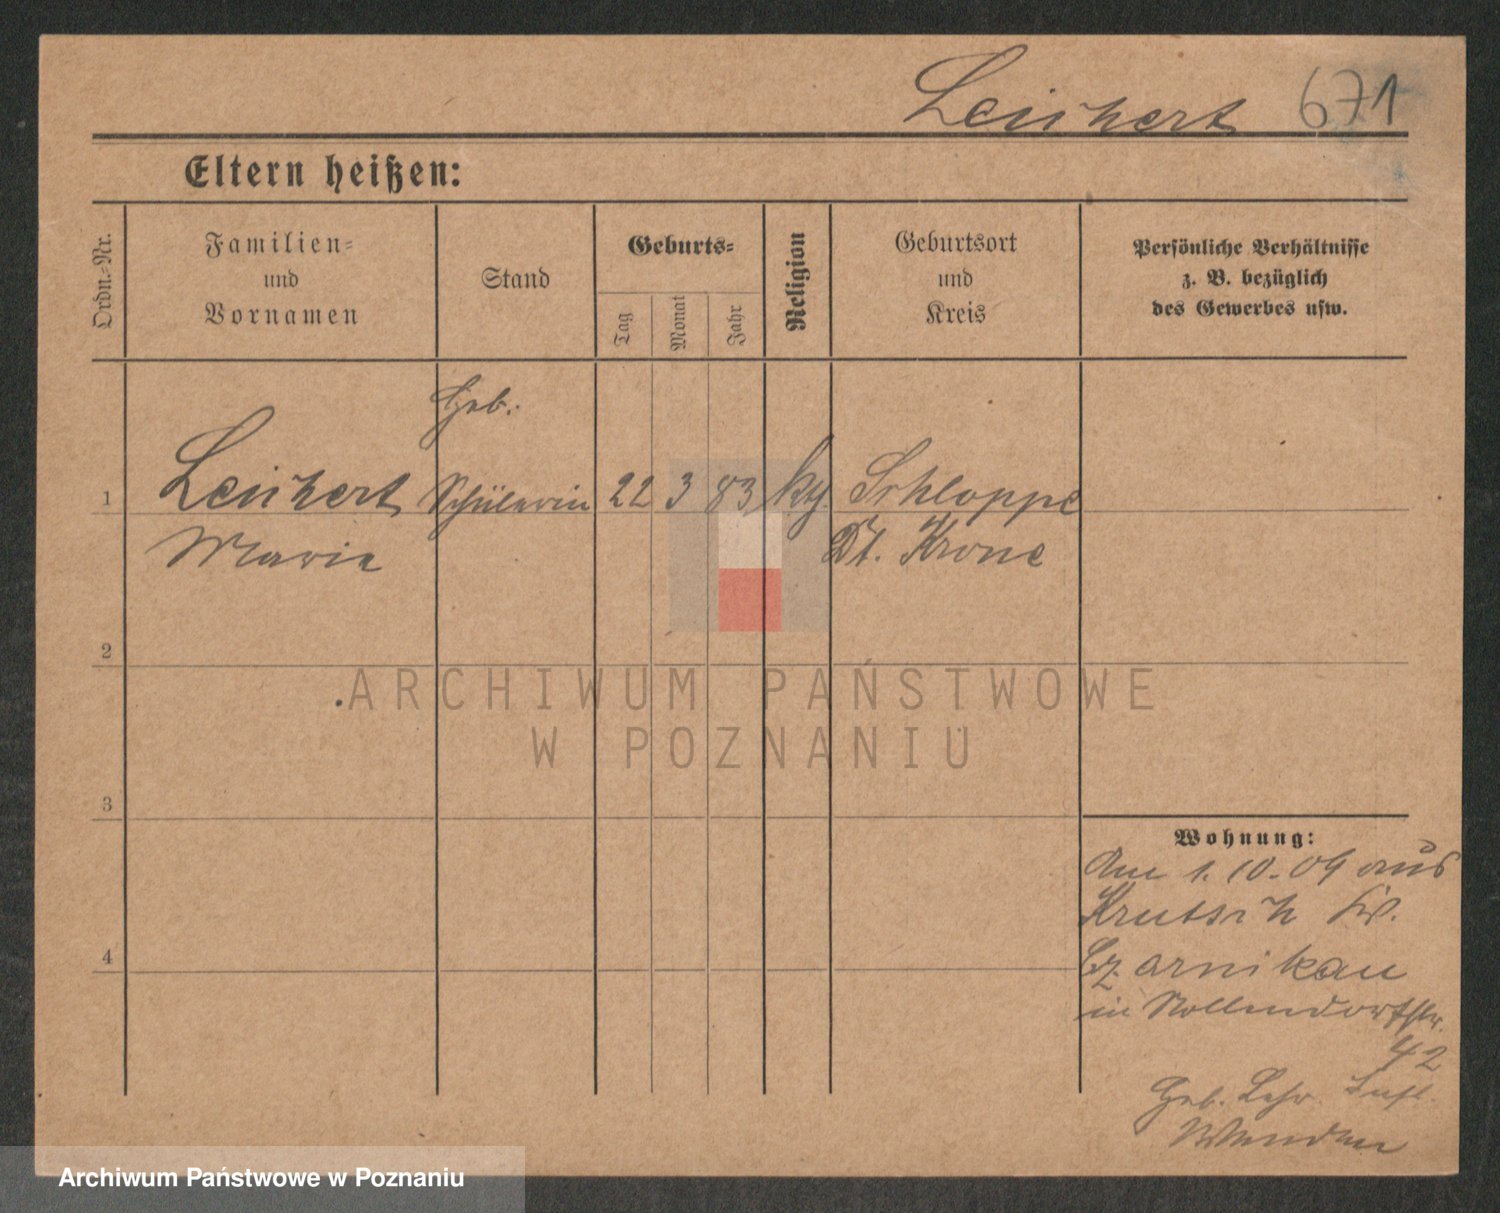 Leichert 671
Eltern heißen:
Ordn.-Nr.
Familien-
und
Vornamen
Stand
Geburts-
Tag
Monat
Jahr
Religion
Geburtsort
und
Kreis
Persönliche Verhältnisse
z. B. bezüglich
des Gewerbes usw.
Geb.
1 Leichert Schülerin 22 3 83 Schloppe
Marie Dt. Krone
2
ARCHIWUM PAŃSTWOWE
W POZNANIU
3
Wohnung:
Am 1. 10. 09 aus
Krutsch
Czarnikau
in Nollendorfstr.
4
42
Geb. Lehr. Inst.
Archiwum Państwowe w Poznaniu